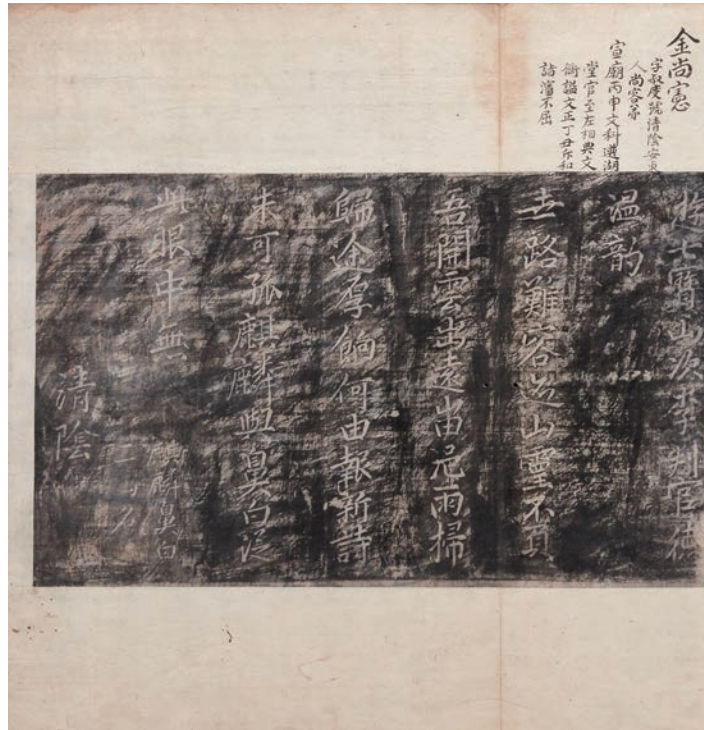 金尚憲
字叔度號清陰安東
人尚容弟
宣廟丙申文科選湖
堂官至左相典文
衡謚文正丁丑斥和
詣瀋不屈
遊七寶山次李判官德
溫韵
路難容山靈不負
吾開雲出遠岫雨掃
歸途厚餉何由報新詩
未可孤麒麟與白從
此眼中無
麒麟白
清陰